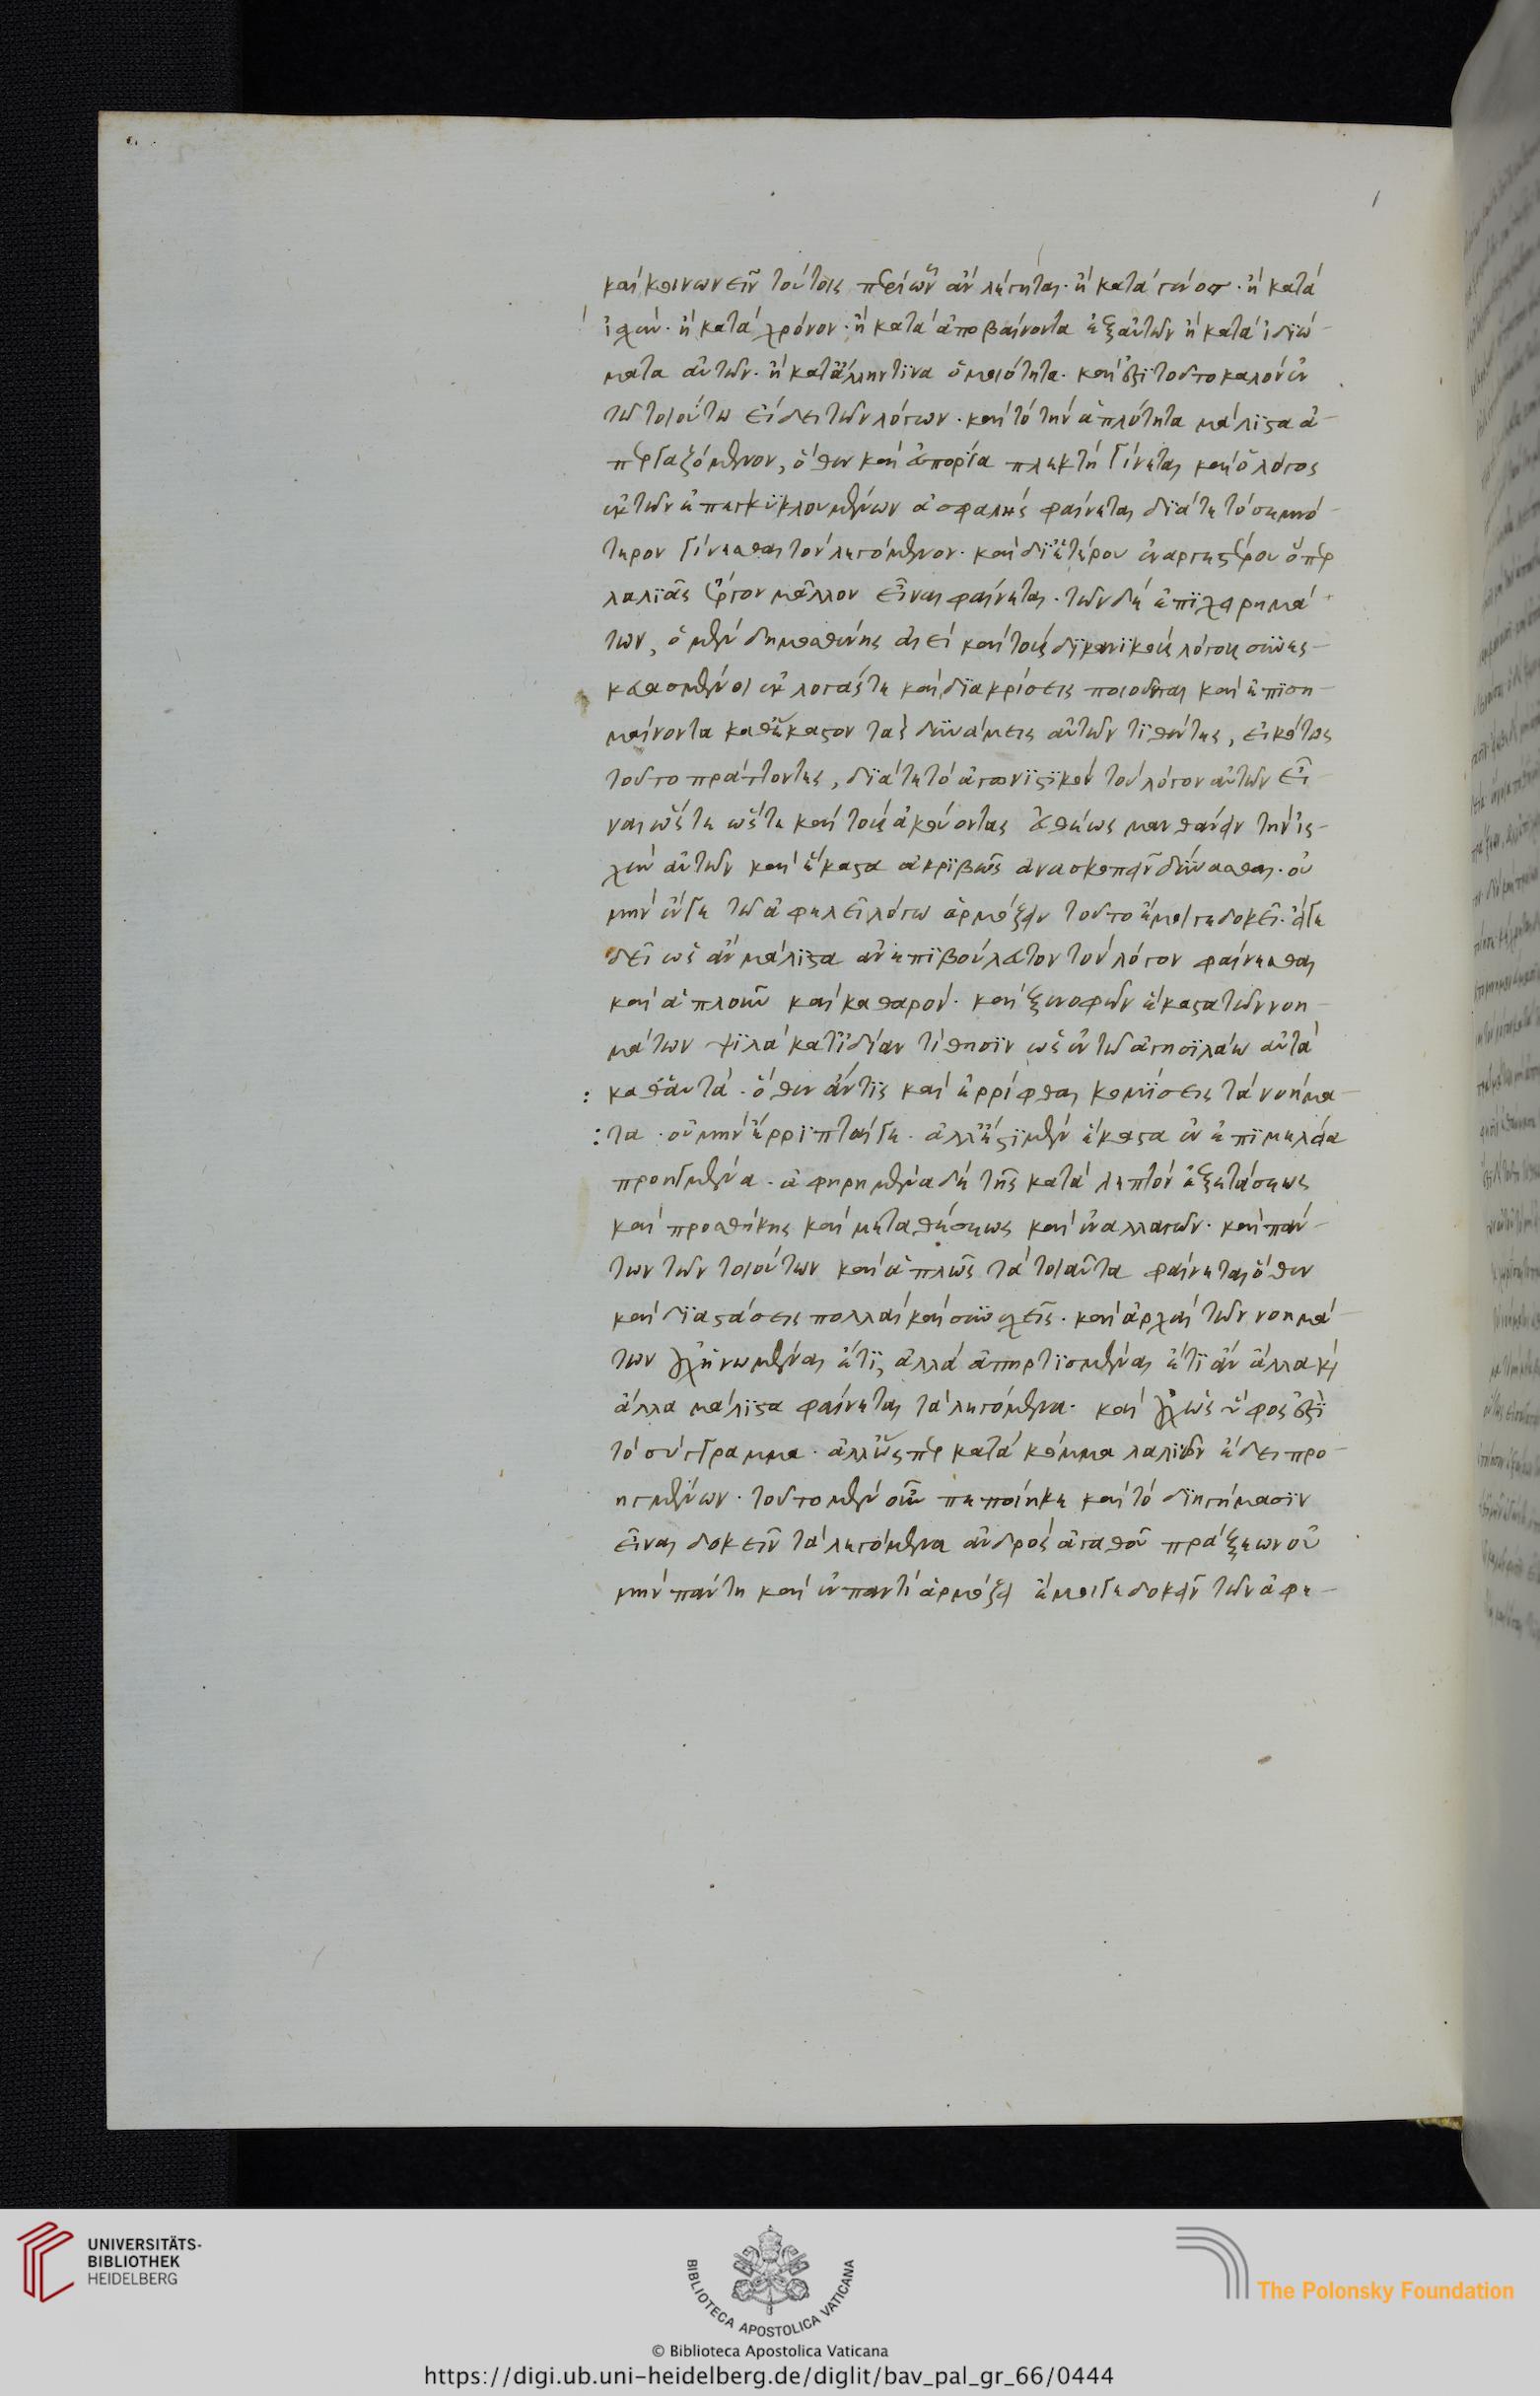 καὶ κοινωνεῖν τούτοις περὶ ὧν ἂν λέγηται. ἢ κατὰ γένος. ἢ κατὰ
ἰσχύν. ἢ κατὰ χρόνον. ἢ κατὰ ἀποβαίνοντα ἐξ αὐτῶν ἢ κατὰ ἰδιώ-
ματα αὐτῶν. ἢ κατ' ἄλλην τινὰ ὁμοιότητα. καὶ ἔστι τοῦτο καλὸν ἐν
τῷ τοιούτῳ εἴδει τῶν λόγων. καὶ τὸ τὴν ἁπλότητα μάλιστα ἀ-
περγαζόμενον, ὅθεν καὶ ἀπορία πλεκτὴ γίνεται καὶ ὁ λόγος
ἐκ τῶν ἐπεισκυκλουμένων ἀσφαλὴς φαίνεται διά τε τὸ σεμνό-
τερον γίνεσθαι τὸν λεγόμενον. καὶ δι' ἑτέρου ἐναργεστέρου ὅπερ
λαλιᾶς ἔργον μᾶλλον εἶναι φαίνεται. τῶν δὲ ἐπιχειρημά-
των, ὁ μὲν δημοσθένης ἀεὶ καὶ τοὺς δικανικοὺς λόγους
ἐκλογάς τε καὶ διακρίσεις ποιοῦνται καὶ ἐπιση-
μαίνονται καθ' ἕκαστον τὰς δυνάμεις αὐτῶν τιθέντες, εἰκότως
τοῦτο πράττοντες, διά τε τὸ ἀγωνιστικὸν τὸν λόγον αὐτῶν εἶ-
ναι ὥστε ὥστε καὶ τοὺς ἀκούοντας εὐθέως μανθάνειν τὴν ἰσ-
χὺν αὐτῶν καὶ ἕκαστα ἀκριβῶς ἀνασκοπεῖν δύνασθαι. οὐ
μὴν ἔν γε τῷ ἀφελεῖ λόγῳ ἁρμόξειν τοῦτο ἔμοιγε δοκεῖ. εἴ γε
δεῖ ὡς ἂν μάλιστα ἀνεπιβούλευτον τὸν λόγον φαίνεσθαι
καὶ ἁπλοῦν καὶ καθαρόν. καὶ ξενοφῶν ἕκαστα τῶν νοη-
μάτων ψιλὰ κατ' ἰδίαν τίθησιν ὡς ἐν τῷ ἀγησιλάῳ αὐτὰ
καθ' αὑτά. ὅθεν ἄν τις καὶ ἐρρίφθαι νομίσειε τὰ νοήμα-
τα. οὐ μὴν ἔρριπταί γε. ἀλλ' ἔστι μὲν ἕκαστα ἐν ἐπιμελείᾳ
προηγμένα. ἀφῃρημένα δὲ τῆς κατὰ λεπτὸν ἐξετάσεως
καὶ προσθήκης καὶ μεταθέσεως καὶ ἐναλλαγῶν. καὶ πάν-
των τῶν τοιούτων καὶ ἁπλῶς τὰ τοιαῦτα φαίνεται ὅθεν
καὶ διαστάσεις πολλαὶ καὶ συνεχεῖς. καὶ ἀρχαὶ τῶν νοημά-
των οὐχ ἡνωμέναι ἔτι, ἀλλὰ ἀπηρτισμέναι ἔτι ἂν ἄλλα καὶ
ἄλλα μάλιστα φαίνεται τὰ λεγόμενα. καὶ οὐχ ὡς ὕφος ἐστὶ
τὸ σύγγραμμα. ἀλλ' ὥσπερ κατὰ κόμμα λαλιῶν εἴδει προ-
ηγμένων. τοῦτο μὲν οὖν πεποίηκε καὶ τὸ διηγήμασιν
εἶναι δοκεῖν τὰ λεγόμενα ἀνδρὸς ἀγαθοῦ πράξεων οὐ
μὴν πάντη καὶ ἐν παντὶ ἁρμόξει ἔμοιγε δοκεῖν τῶν ἀφε-
UNIVERSITÄTS-
BIBLIOTHEK
HEIDELBERG
BIBLIOTECA APOSTOLICA VATICANA
The Polonsky Foundation
© Biblioteca Apostolica Vaticana
https://digi.ub.uni-heidelberg.de/diglit/bav_pal_gr_66/0444